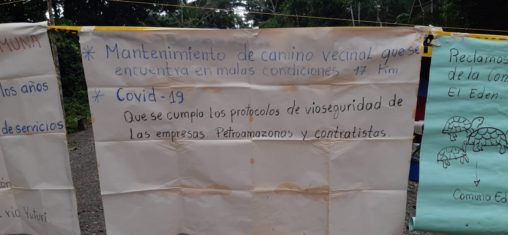 MUNA
los años
de servicios
ción
erio Yuturi
* Mantenimiento de camino vecinal que se
encuentra en malas condiciones 17 Km
* Covid-19
Que se cumpla los protocolos de vioseguridad de
las empresas Petroamazonas y contratistas.
Reclamos
de la Com
El Eden.
Comuna Ed